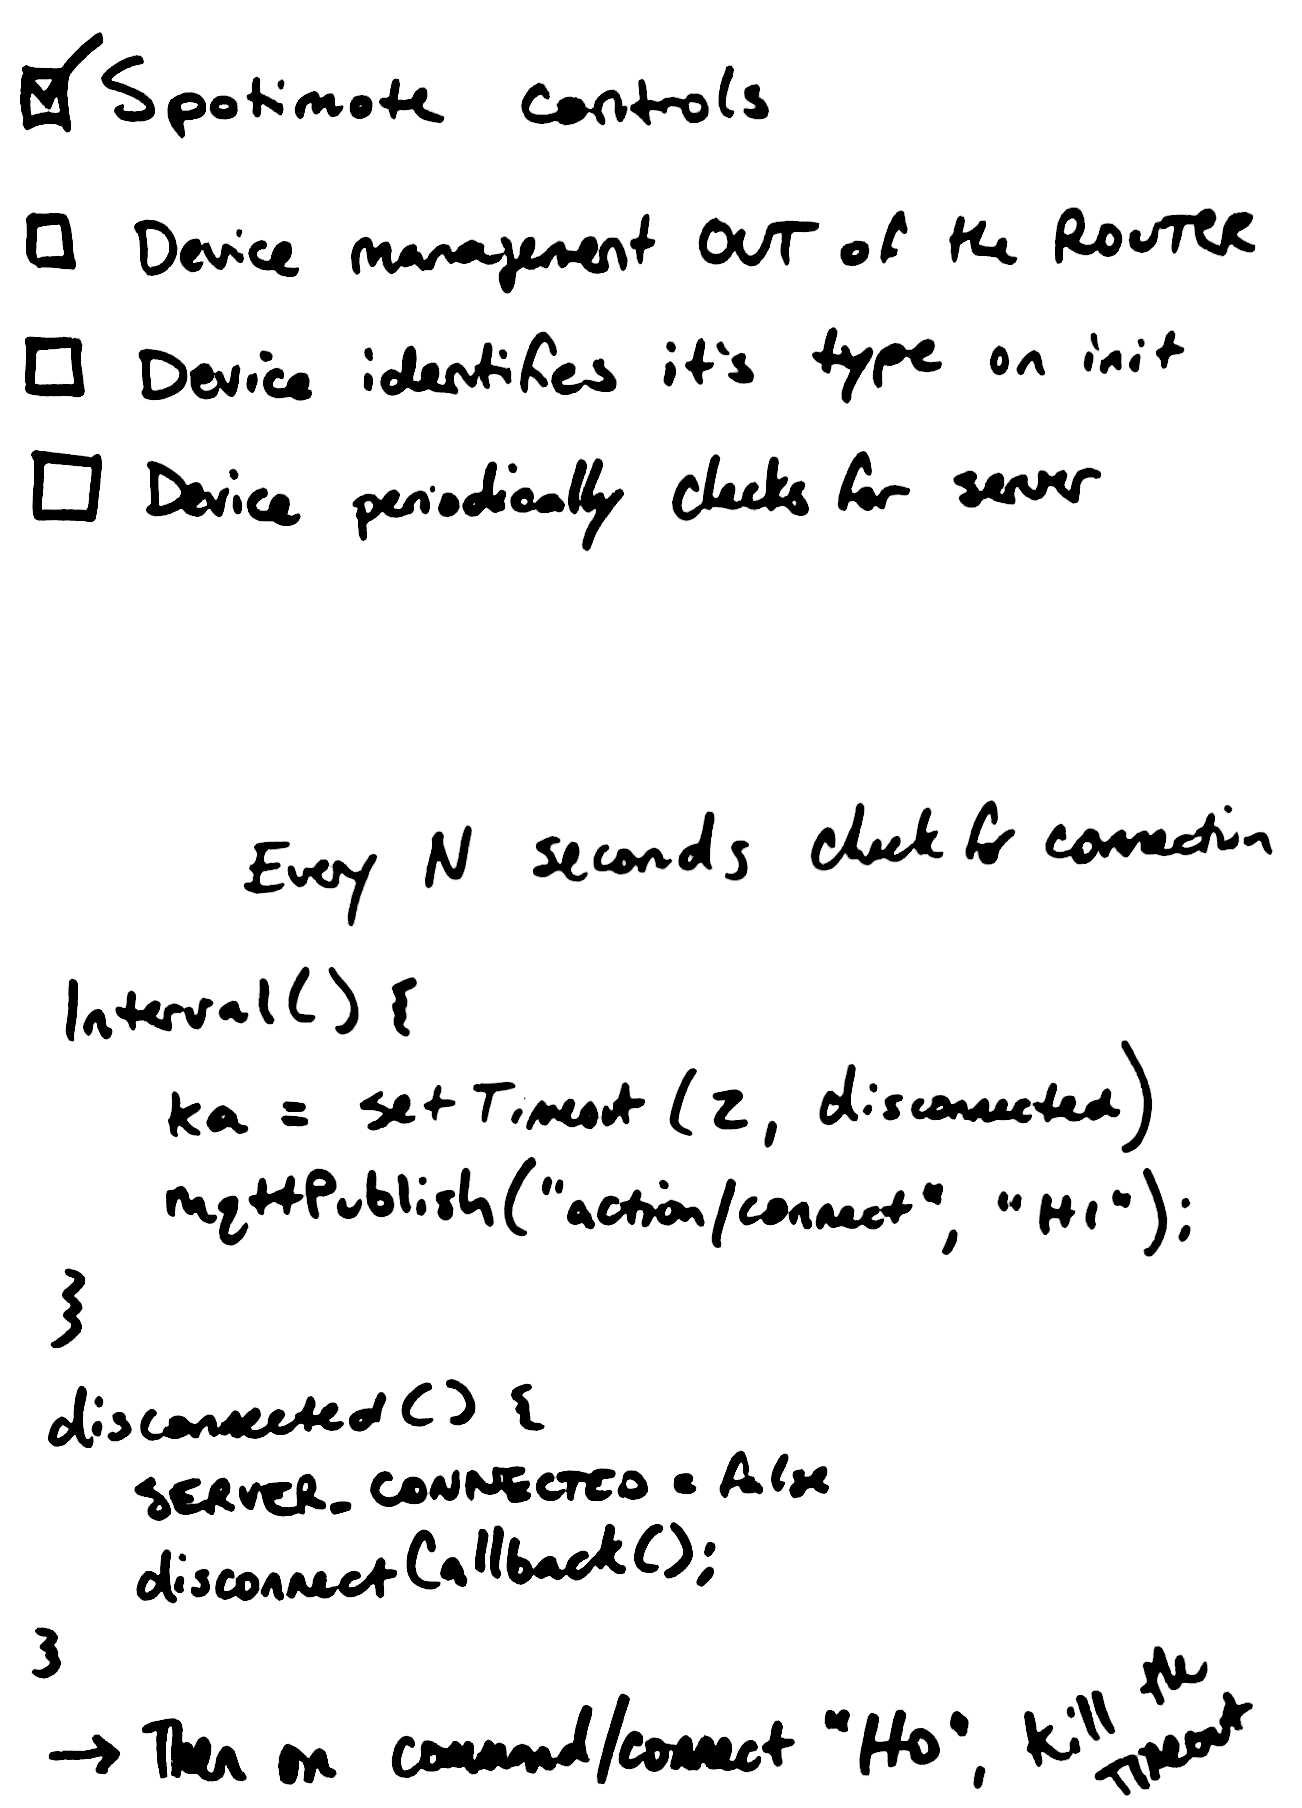 Spotimote controls
Device management OUT of the ROUTER
Device identifies it's type on init
Device periodically checks for server
Every N seconds check for connection
Interval() {
ka = setTimeout(2, disconnected)
mqttPublish("action/connect", "HI");
}
disconnected() {
SERVER_CONNECTED = false
disconnectCallback();
}
→ Then on command/connect "HO", kill the
TIMEOUT